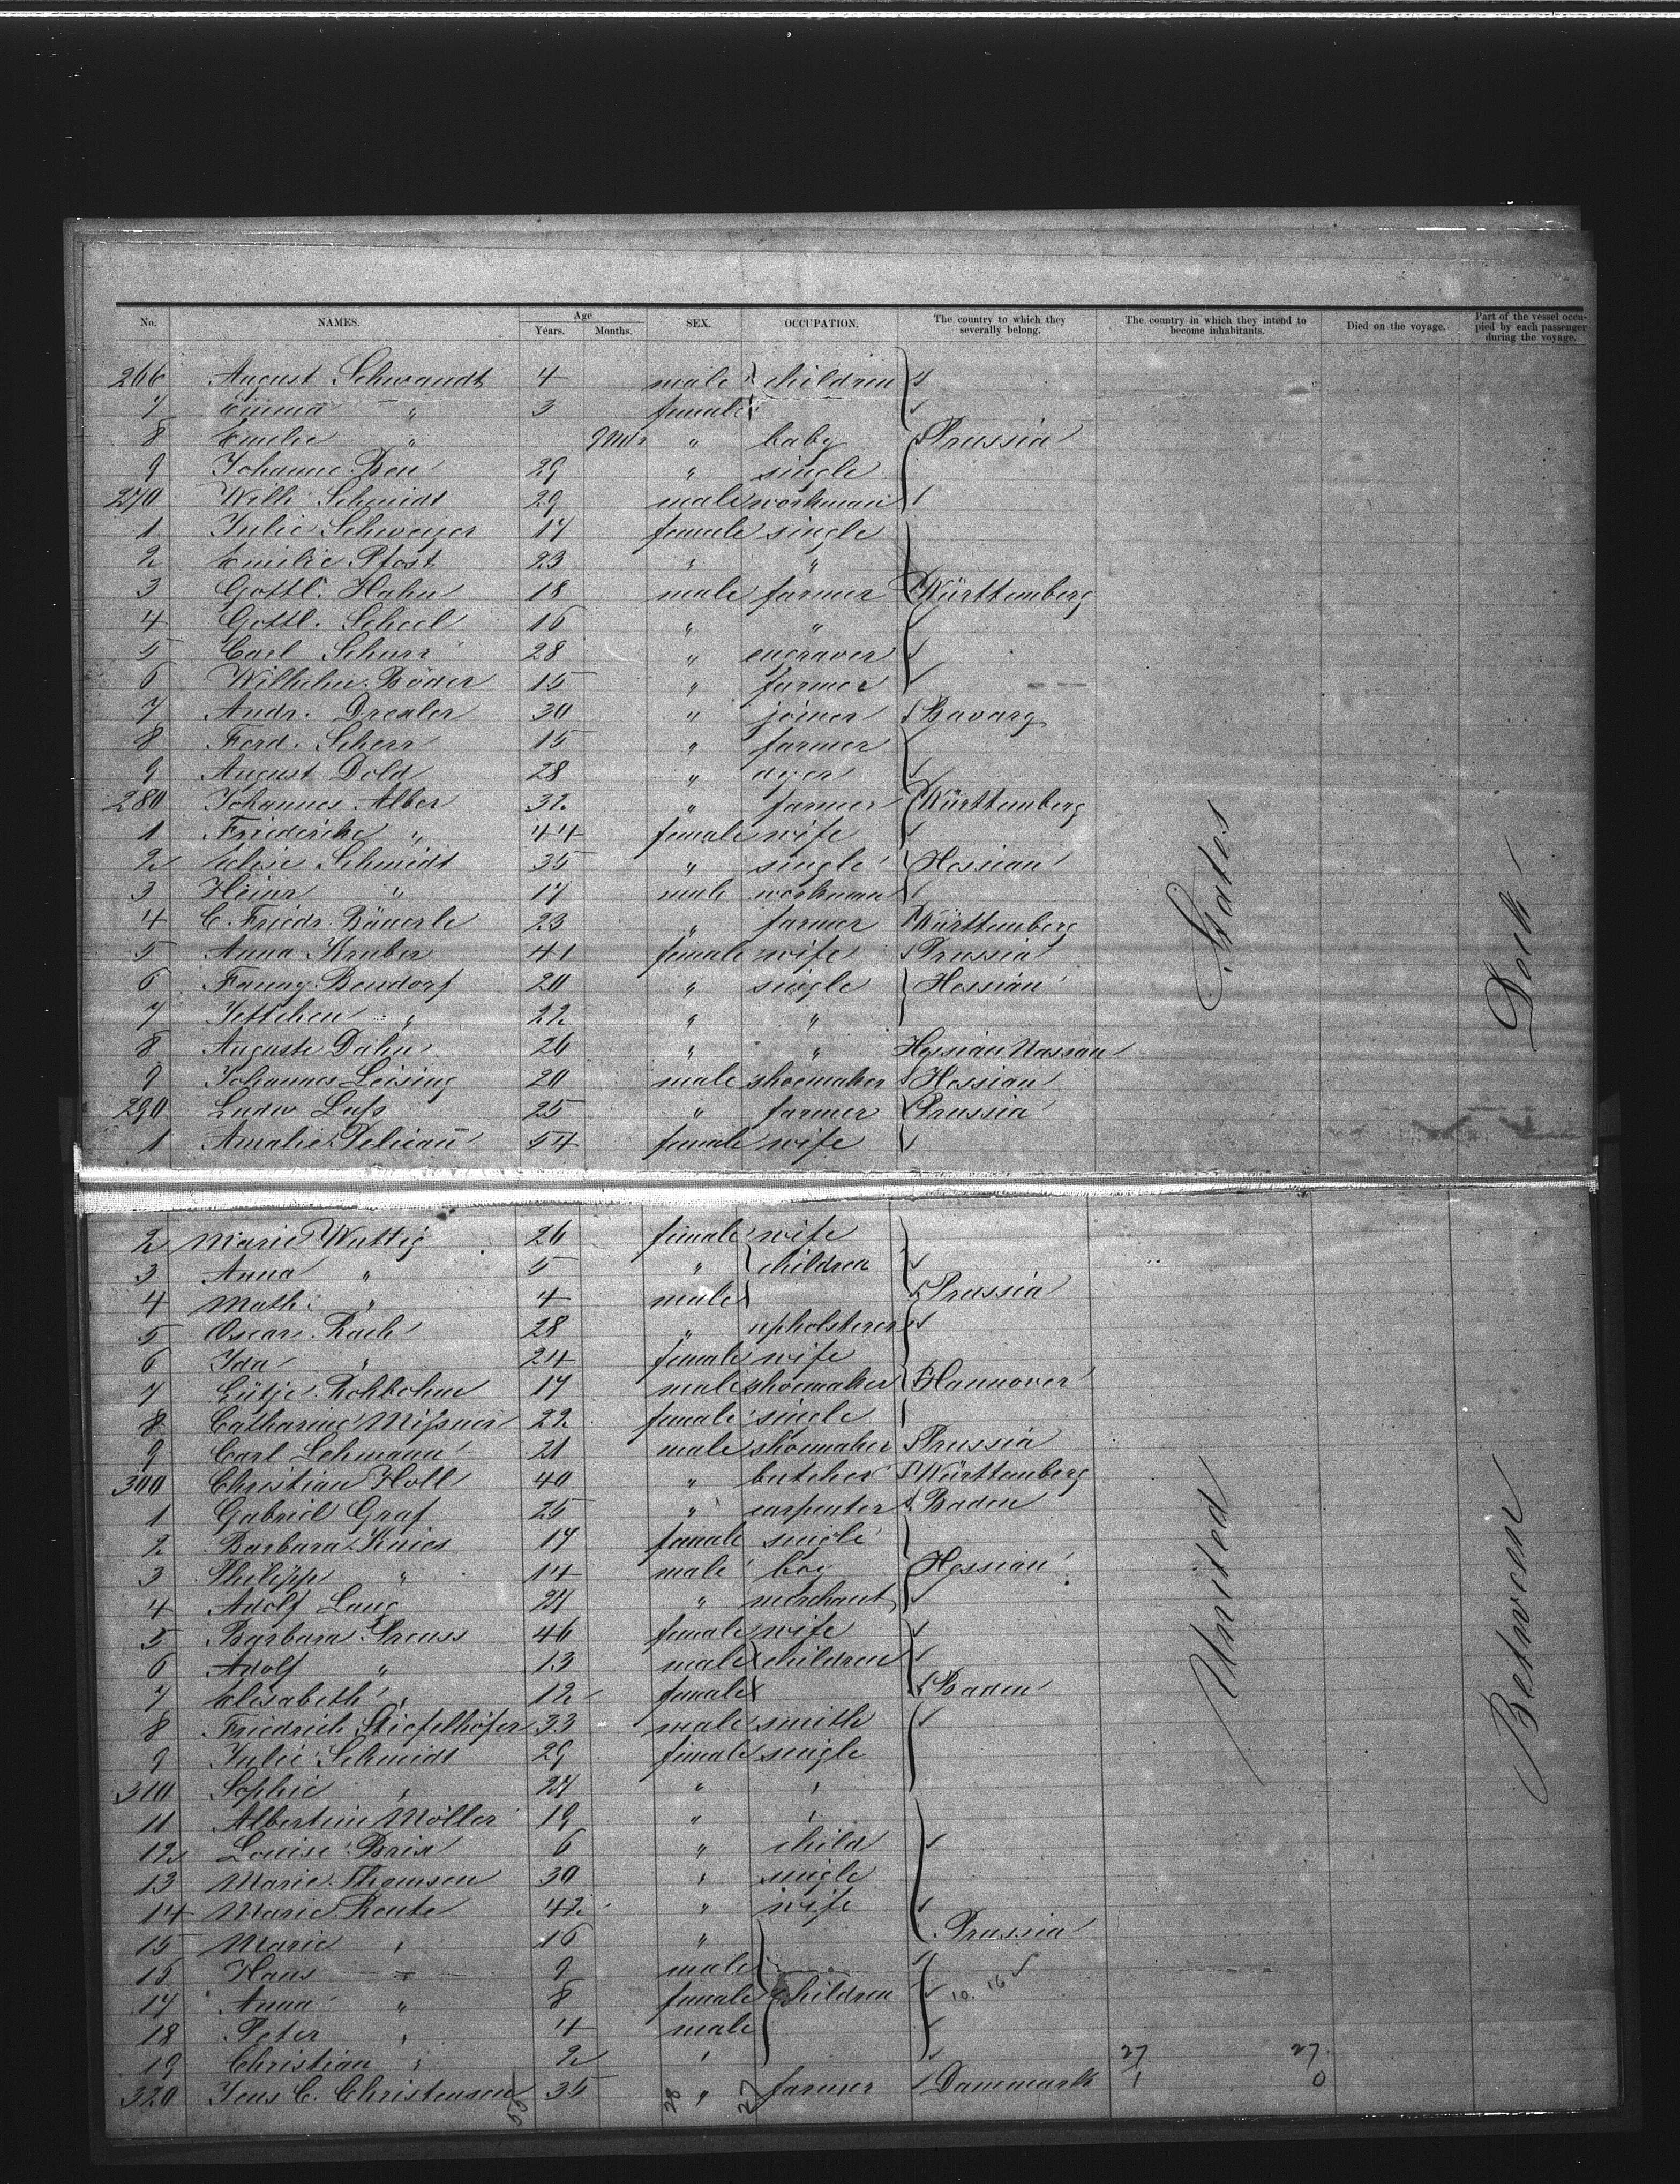 No. NAMES. Age Years. Months. SEX. OCCUPATION. The country to which they severally belong. The country in which they intend to become inhabitants. Died on the voyage. Part of the vessel occupied by each passenger during the voyage.
266 August Schwandt 4 male children
7 Emma " 3 female
8 Emilie " 9 Mts " baby Prussia
9 Johanne Ben 29 " single
270 Wilh. Schmidt 29 male workman
1 Julie Schweizer 17 female single
2 Emilie Pfost 23 " "
3 Gottl. Hahn 18 male farmer Württemberg
4 Gottl. Scheel 16 " "
5 Carl Schurr 28 " engraver
6 Wilhelm Böder 15 " farmer
7 Andr. Drexler 30 " joiner Bavarg
8 Ferd. Scherr 15 " farmer
9 August Dold 28 " dyer
280 Johannes Alber 32 " farmer Württemberg
1 Friederike " 44 female wife
2 Elise Schmidt 35 " single Hessian
3 Heinr " 17 male workman
4 C. Friedr. Bäuerle 23 " farmer Württemberg
5 Anna Kruber 41 female wife Prussia
6 Fanny Bendorf 20 " single Hessian
7 Jettchen " 22 " "
8 Auguste Dahn 26 " " Hessian Nassau
9 Johannes Leising 20 male shoemaker Hessian
290 Ludw Luss 25 " farmer Prussia
1 Amalie Pelican 54 female wife
2 Marie Wuttig 26 female wife
3 Anna " 5 " children
4 Math. " 4 male Prussia
5 Oscar Rach 28 " upholsterer
6 Ida " 24 female wife
7 Lütje Rohbohm 17 male shoemaker Hannover
8 Catharine Missner 22 female single
9 Carl Lehmann 21 male shoemaker Prussia
300 Christian Holl 40 " butcher Württemberg
1 Gabriel Graf 25 " carpenter Baden
2 Barbara Knies 17 female single
3 Philipp " 14 male boy Hessian
4 Adolf Lang 27 " merchant
5 Barbara Preuss 46 female wife
6 Adolf " 13 male children
7 Elisabeth " 12 female Baden
8 Friedrich Stiefelhöfer 33 male smith
9 Julie Schmidt 29 female single
310 Sophie " 27 " "
11 Albertine Möller 19 " "
12 Louise Brix 6 " child
13 Marie Thomsen 30 " single
14 Marie Reute 42 " wife
15 Marie " 16 " Prussia
15 Hans " 9 male
17 Anna " 8 female children 10. 16
18 Peter " 4 male
19 Christian " 2 " 27 27
320 Jens C. Christensen 35 " farmer Danemark 1 0
55 28 27
United States
Between Deck